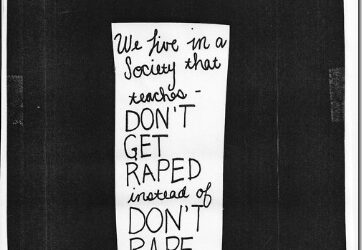 We live in a
Society that
teaches -
DON'T
GET
RAPED
instead of
DON'T
RAPE